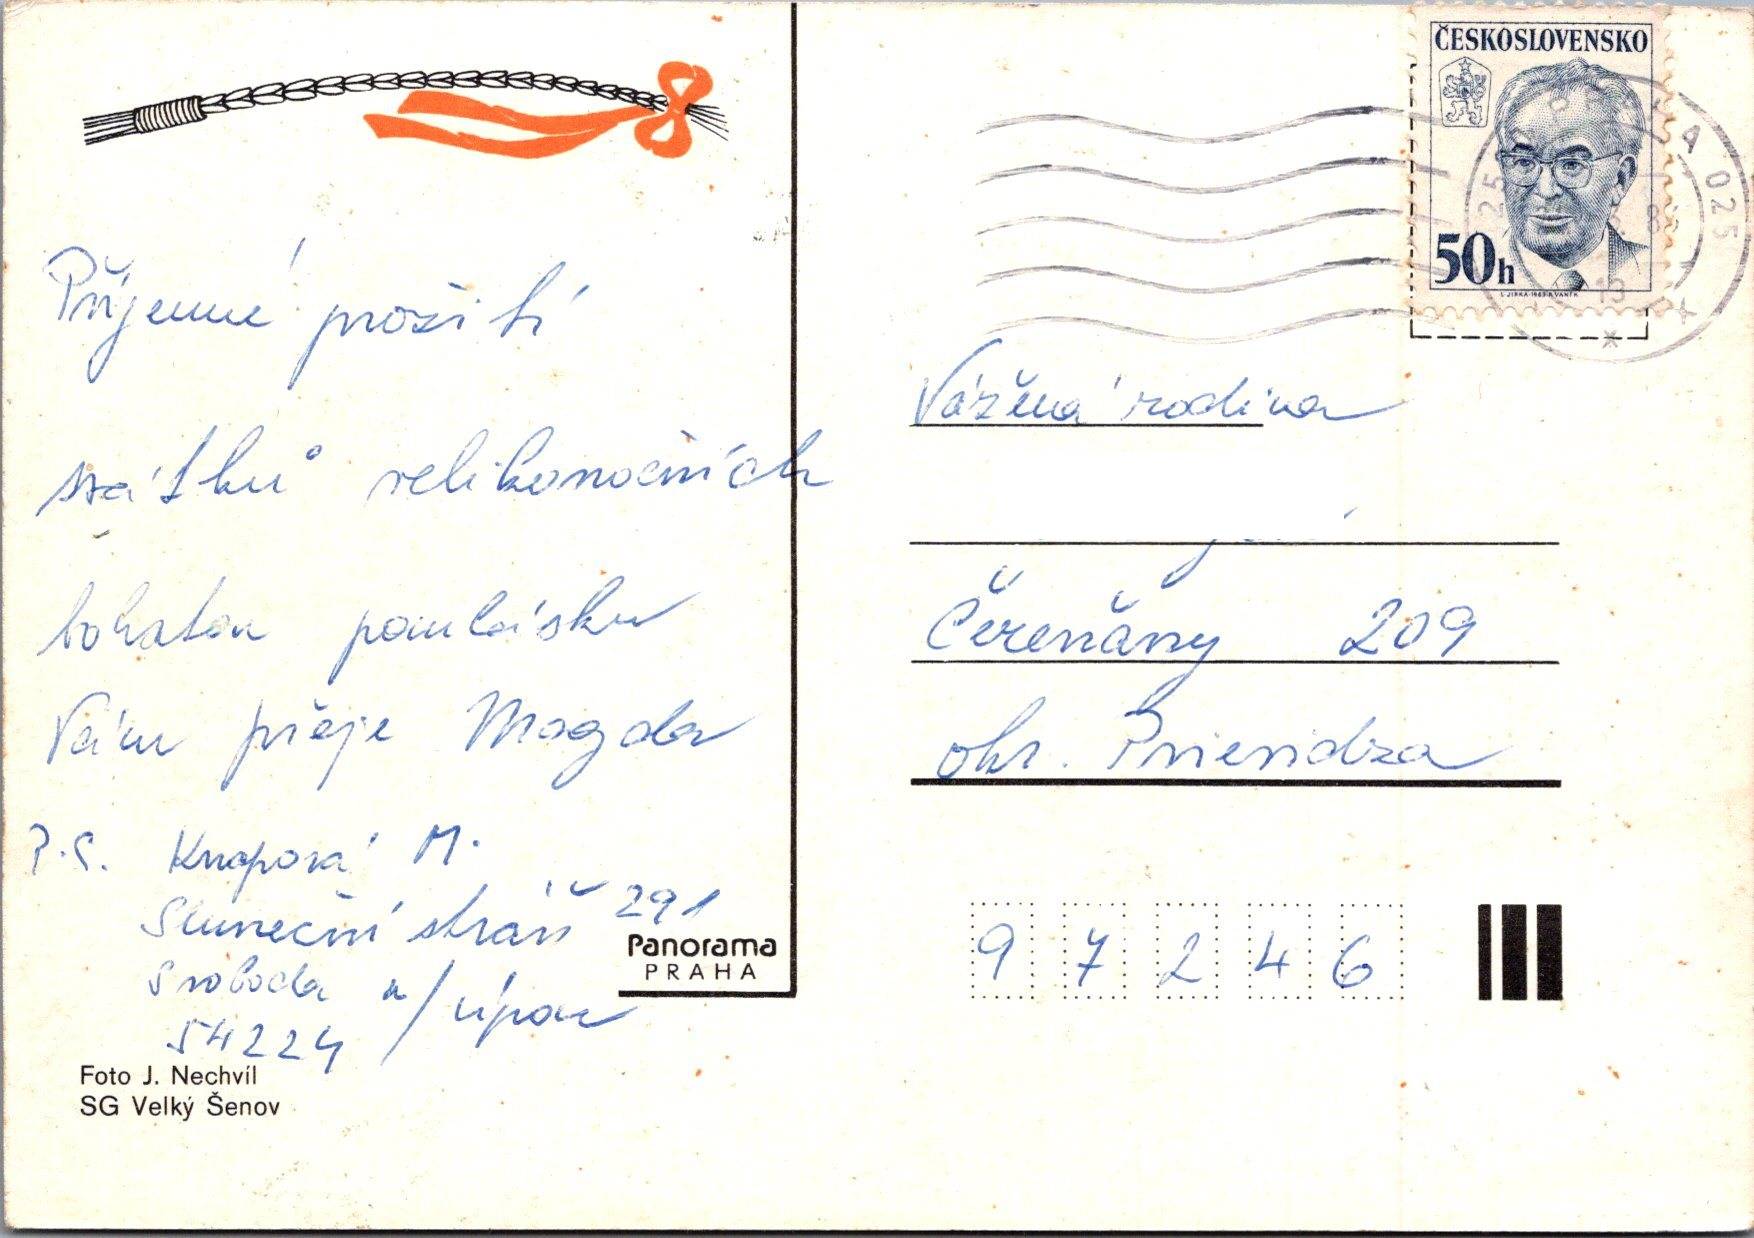 Příjemné prožití
svátků velikonočních
bohatou pomlásku
Vám přeje Magda
P.S. Knapová M.
Sluneční stráň 291
Svoboda n/úpou
54224
Panorama
PRAHA
Foto J. Nechvíl
SG Velký Šenov
ČESKOSLOVENSKO
50h
L.JIRKA-1983-R.VANĚK
025
Vážená rodina
Čereňany 209
okr. Prievidza
97246